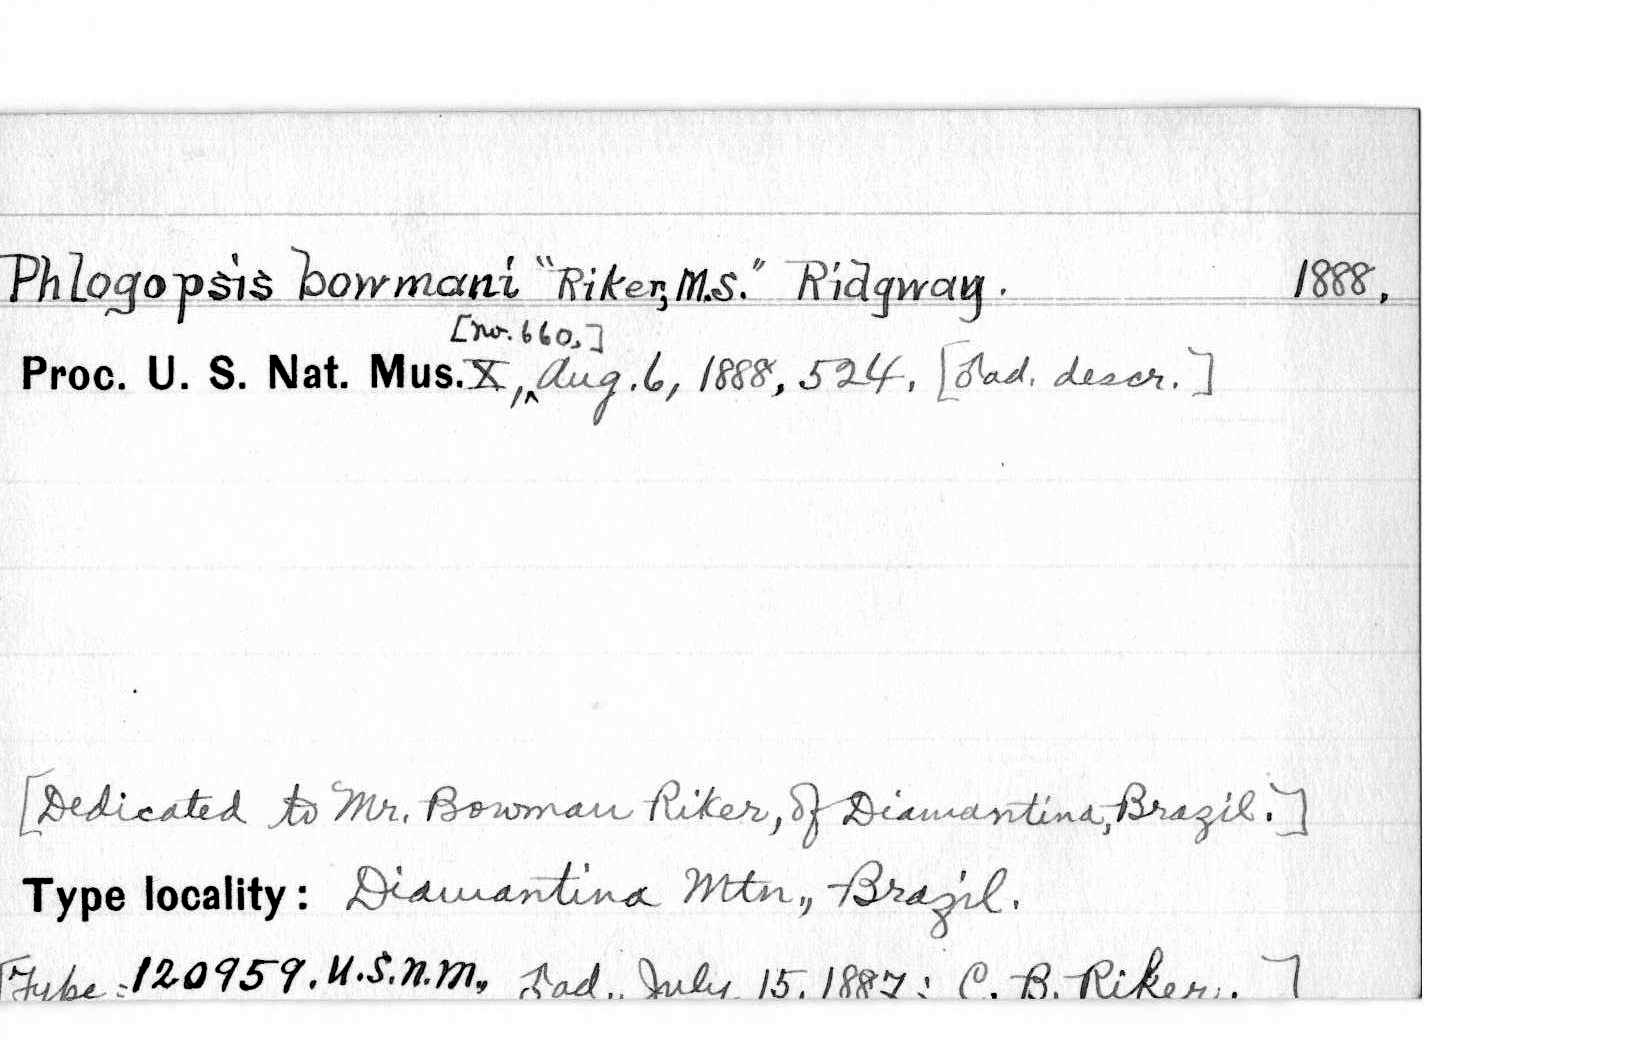 Phlogopsis bowmani "Riker, M.S." Ridgway. 1888.
[no. 660,]
Proc. U. S. Nat. Mus. X, ^ Aug. 6, 1888, 524. [♂ad. descr.]
[Dedicated to Mr. Bowman Riker, of Diamantina, Brazil.]
Type locality: Diamantina Mtn., Brazil.
[Type = 120959. U.S.N.M., ♂ad., July 15, 1887; C. B. Riker.]